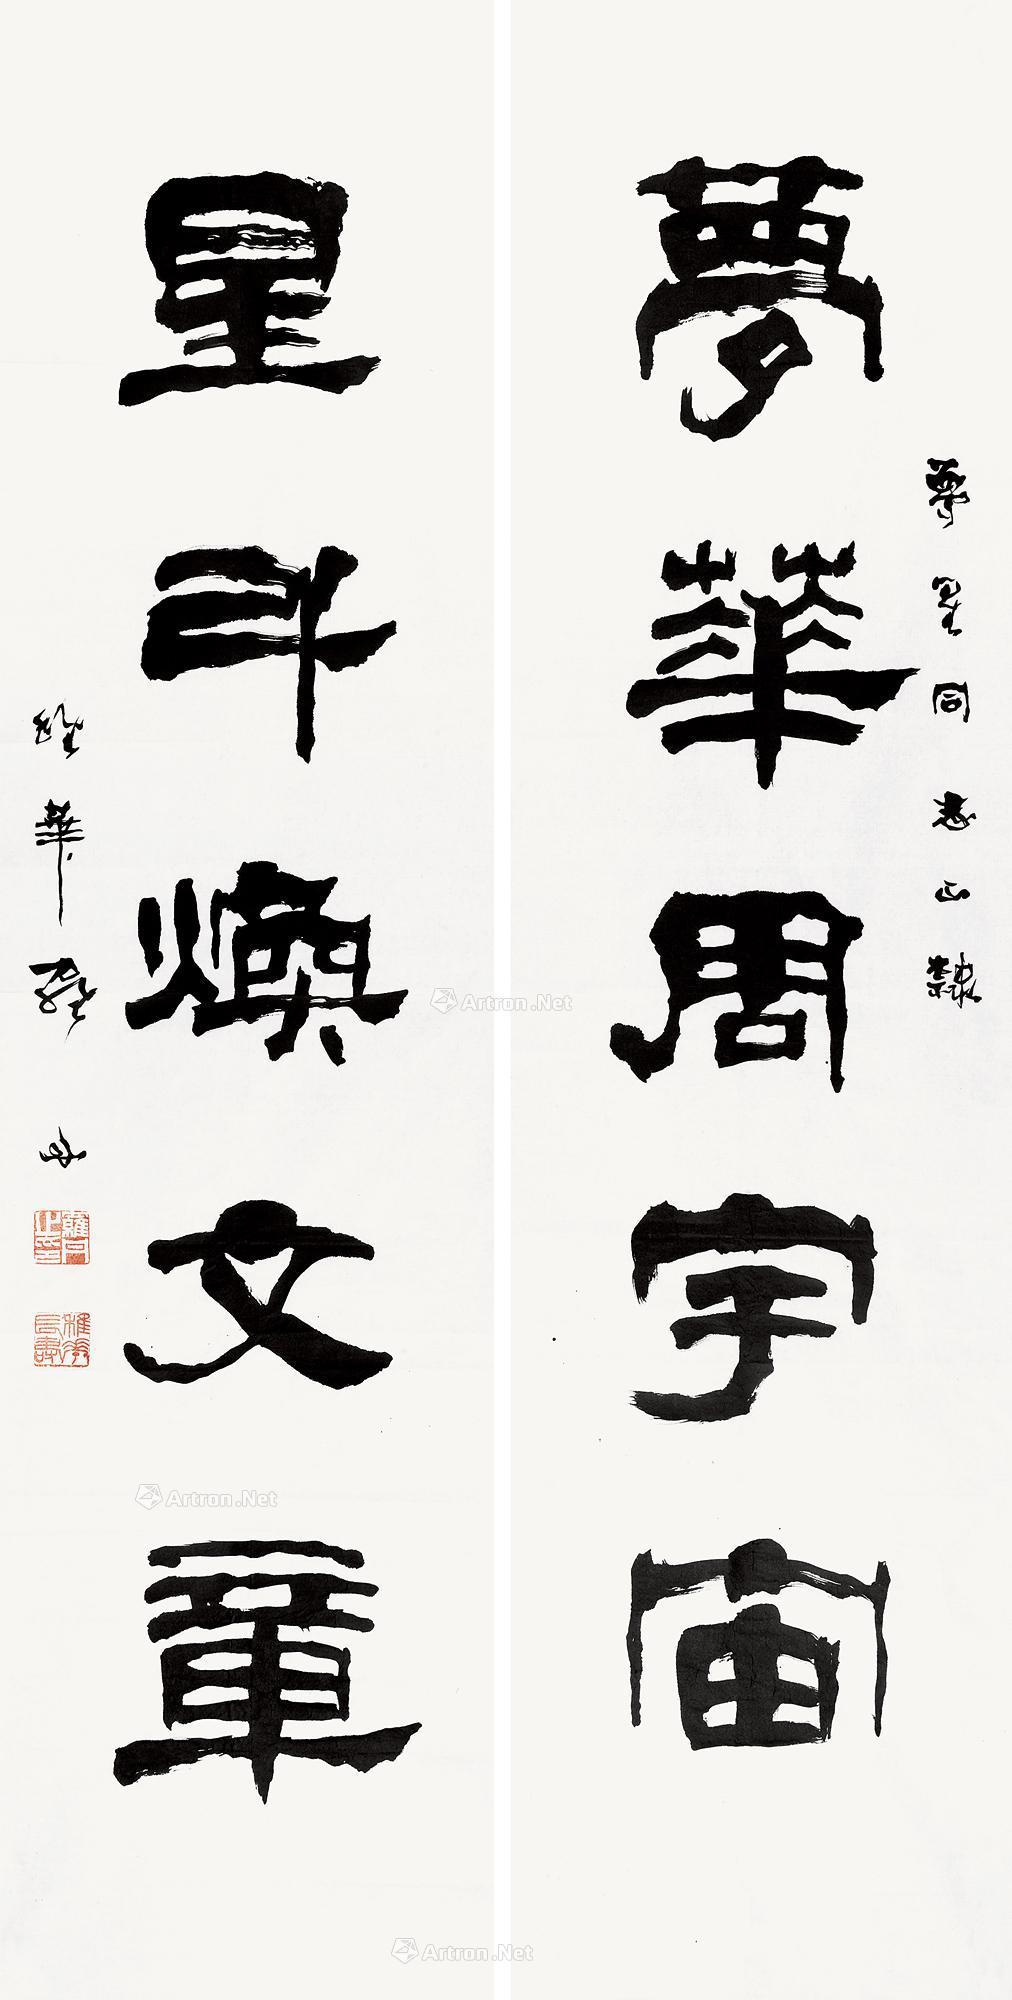 夢華周宇宙
夢星同志正隸
星斗煥文章
華
Artron.Net
Artron.Net
Artron.Net